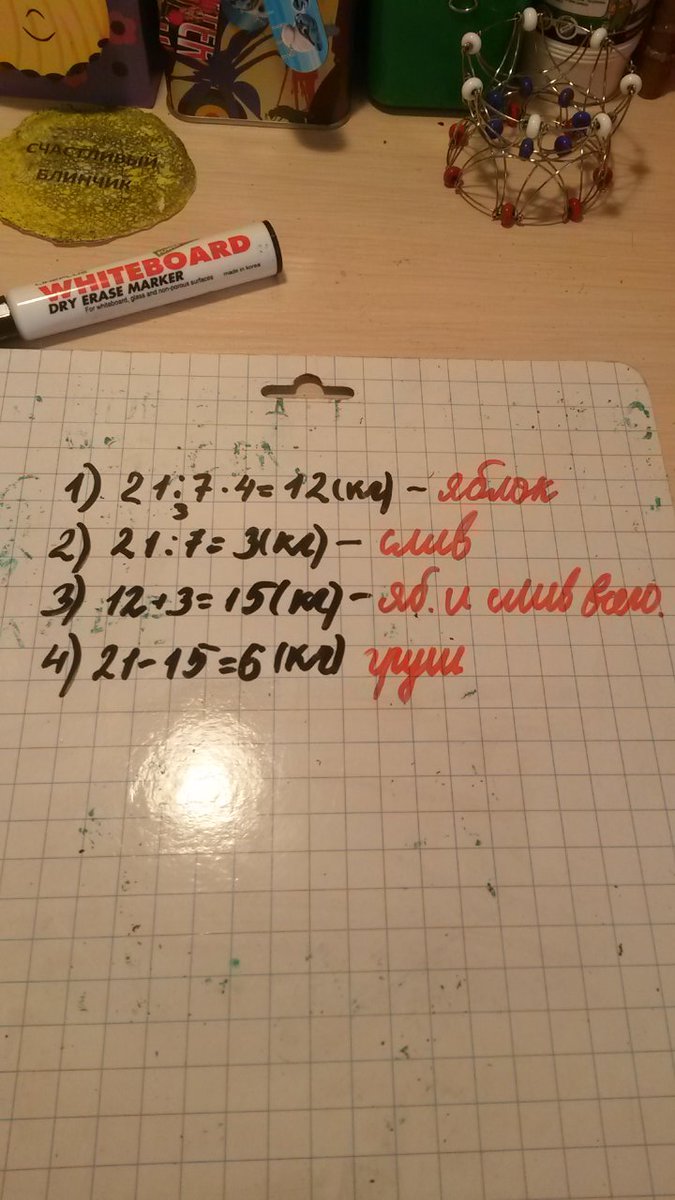 СЧАСТЛИВЫЙ
БЛИНЧИК
WHITEBOARD
DRY ERASE MARKER
For whiteboard, glass and non-porous surfaces
made in korea
1) 21:7·4=12(кг) – яблок
3
2) 21:7=3(кг) – слив
3) 12+3=15(кг) – яб. и слив всего.
4) 21-15=6(кг) груш